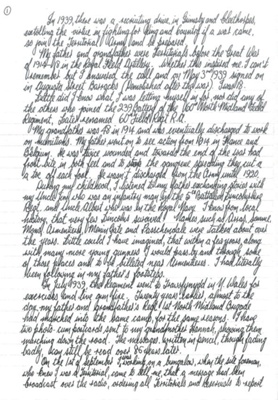 ①
In 1939, there was a recruiting drive in Grimsby and Cleethorpes,
extolling the merits in fighting for King and Country if a war came.
so join the Territorial Army and be prepared.
My father and grandfather were Territorials before the Great War
of 1914-18 in the Royal Field Artillery. Whether this inspired me I can't
remember but I answered the call and on May 3rd 1939 signed on
in Augusta Street Barracks (demolished after the war). I was 18.
Little did I know what I was letting myself in for, nor did any of
the others who joined the 239 Battery of the 60th North Midland Field
Regiment, later renamed 60 Field Regt R.A.
My grandfather was 48 in 1914 and was eventually discharged to work
on munitions. My father went on to see action from 1914 in France and
Belgium. He was twice wounded and towards the end of the war had
frost bite in his feet and to stop the gangrene spreading they cut
a toe off each foot. He wasn't discharged from the Army until 1920.
During my childhood, I listened to my father exchanging stories with
my Uncle Jim who was an infantry man in the 10th Battalion Lincolnshire
Regt, and Uncle Albert who was in the Royal Navy. I know from
history, that very few Lincolns survived. Names such as Arras, Somme,
Mons, Armentieres, Menin Gate and Passchendaele were talked about over
the years. Little could I have imagined, that within a few years, along
with many more young gunners I would pass by and through some
of these places and to be billeted near Armentieres. I had literally
been following in my father's footsteps.
In July 1939, the Regiment went to Trawsfynydd in N Wales for
exercises and live gun fire. Twenty years earlier, almost to the
day, my father and grandfather's Regt 1st North Midland Brigade
had marched into the same camp, for the same reasons. I have
two photo-cum postcards sent to my grandmother Hannah, showing them
marching down the road. The message, written in pencil, though fading
badly, can still be read over 85 years later.
On the 1st of September I working on a bungalow, when the site foreman,
who knew I was a Territorial, came to tell me, that a message had been
broadcast over the radio, ordering all Territorials and Reservists to report